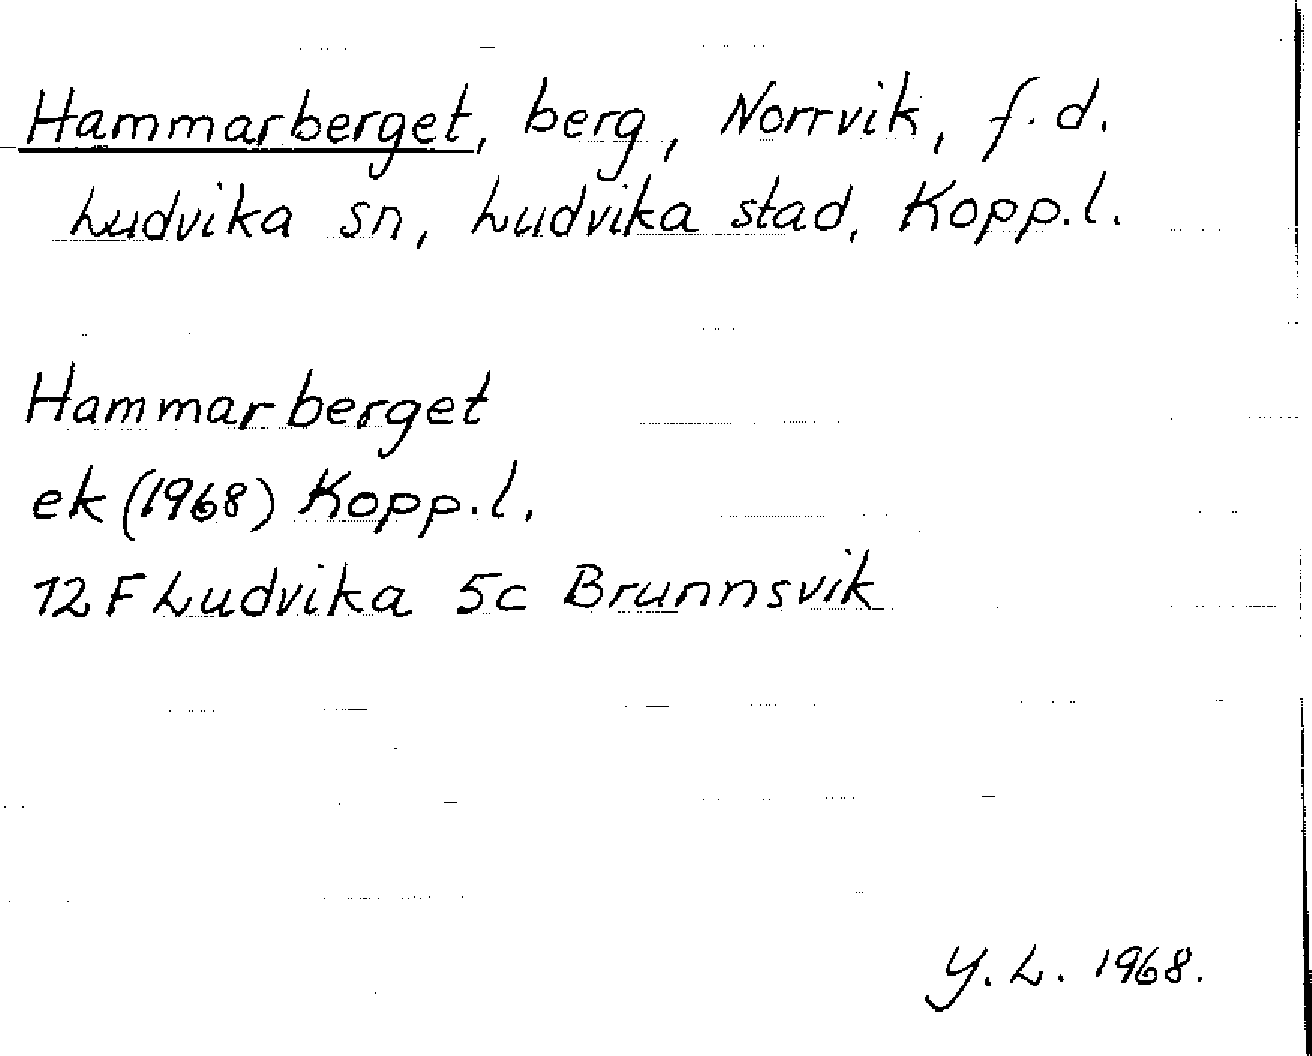 Hammarberget, berg, Norrvik, f.d.
Ludvika sn, Ludvika stad, Kopp.l.
Hammarberget
ek (1968) Kopp.l.
12F Ludvika 5c Brunnsvik
Y.L. 1968.